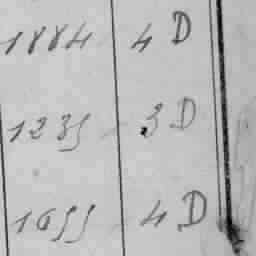 1884 4 D
1235 3 D
1655 4 D